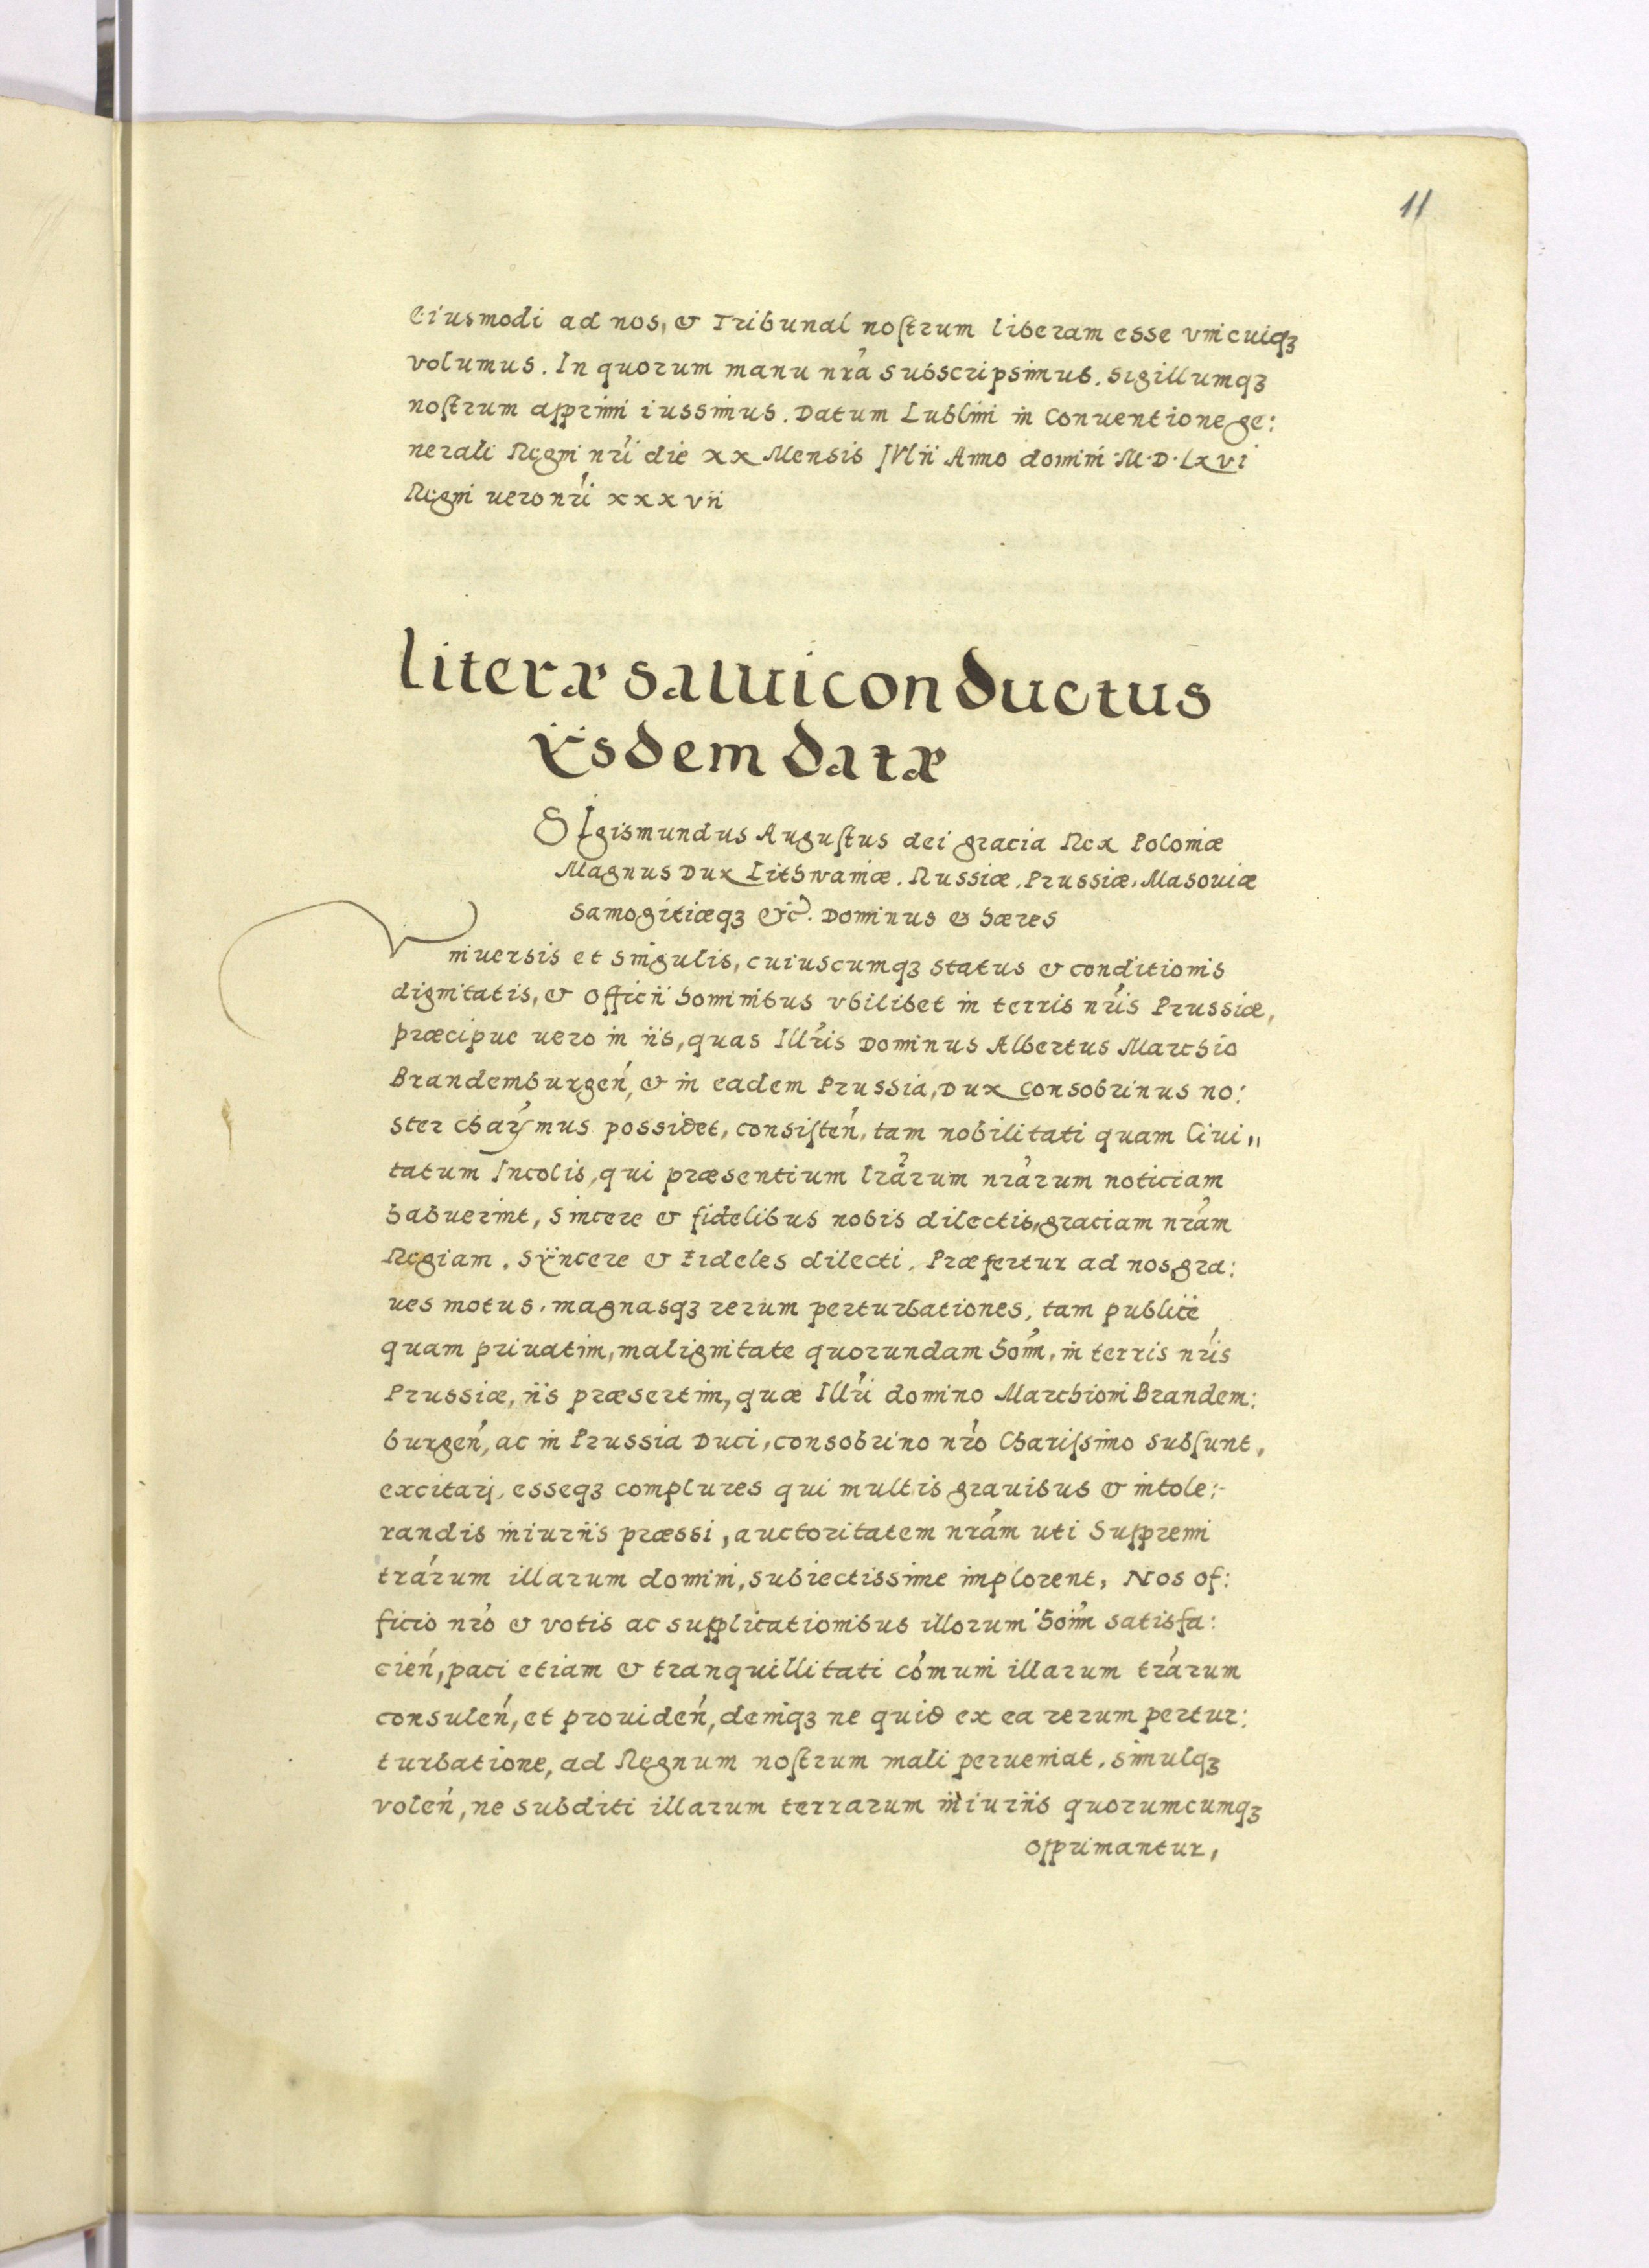 11
Eiusmodi ad nos, & Tribunal nostrum liberam esse vnicuiqꝫ
volumus. In quorum manu nrá subscripsimus. sigillumqꝫ
nostrum apprimi iussimus. Datum Lublini in Conuentione ge:
nerali Regni nri die xx Mensis IVlii Anno domini M.D.Lxvi
Regni uero nri xxxvii
literæ salui conductus
ÿsdem datæ
SIgismundus Augustus dei gracia Rex Poloniæ
Magnus Dux Lithvaniæ. Russiæ. Prussiæ, Masouiæ
Samogitiæqꝫ &c. Dominus & hæres
Vniuersis et singulis, cuiuscumqꝫ status & conditionis
dignitatis, & officii hominibus vbilibet in terris nris Prussiæ,
præcipue uero in iis, quas Illris Dominus Albertus Marchio
Brandemburgeń, & in eadem Prussia, Dux consobrinus no:
ster charÿmus possidet, consisteń, tam nobilitati quam Ciui„
tatum Incolis, qui præsentium lrarum nrarum noticiam
habuerint, sincere & fidelibus nobis dilectis, graciam nram
Regiam. Sÿncere & Fideles dilecti. Præfertur ad nos gra:
ues motus. magnasqꝫ rerum perturbationes, tam publice
quam priuatim, malignitate quorundam hom̃, in terris nris
Prussiæ, iis præsertim, quæ Illri domino Marchioni Brandem:
burgeń, ac in Prussia Duci, consobrino nro Charissimo subsunt,
excitarj, esseqꝫ complures qui multis grauibus & intole:
randis iniuriis præssi, auctoritatem nram uti Suppremi
trarum illarum domini, subiectissime implorent, Nos of:
ficio nro & votis ac supplicationibus illorum hoim̃ satisfa:
cień, paci etiam & tranquillitati comuni illarum trarum
consuleń, et prouideń, deniqꝫ ne quid ex ea rerum pertur:
turbatione, ad Regnum nostrum mali perueniat. simulqꝫ
voleń, ne subditi illarum terrarum iniuriis quorumcumqꝫ
opprimantur,